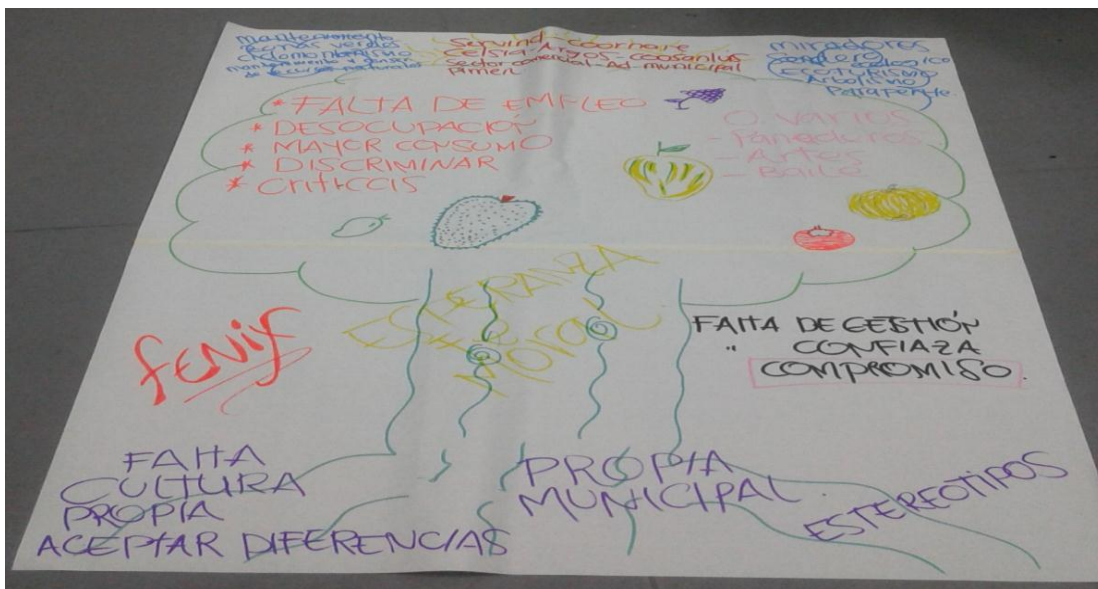 mantenimiento
zonas verdes
ciclomontañismo
mantenimiento y
de recursos naturales
Servind - coornare
Celsia - Argos - coosanluis
Sector comercial - Ad. municipal
miradores
sendero ecologico
(ECOTURISMO
Arbolismo)
Parapente.
* FALTA DE EMPLEO
* DESOCUPACIÓN
* MAYOR CONSUMO
* DISCRIMINAR
* criticas
O. varios
- Panaderos
- Artes
- Baile
ESPERANZA
Moral
fENix
FALTA DE GESTIÓN
" CONFIAZA
COMPROMISO.
FALTA
CULTURA
PROPIA
ACEPTAR DIFERENCIAS
PROPIA
MUNICIPAL.
ESTEREOTIPOS